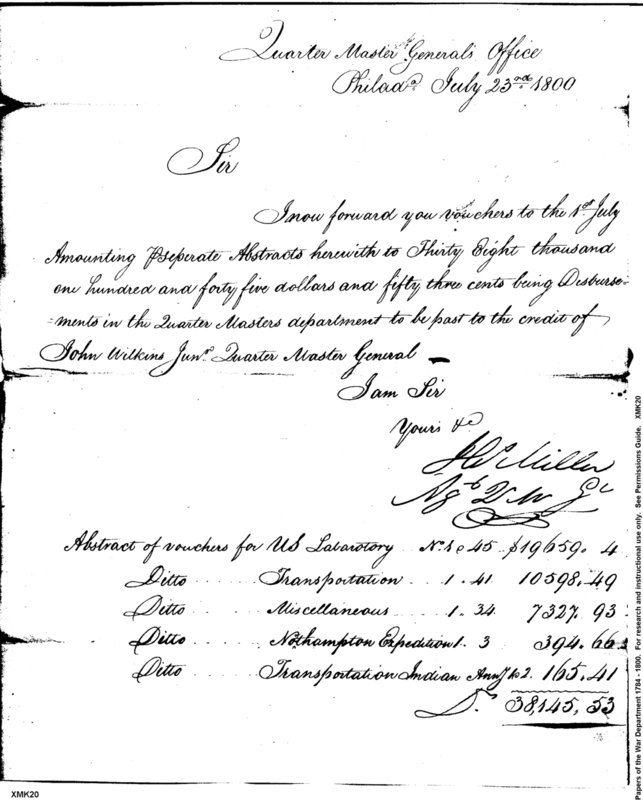 Quarter Master Generals Office
Philada July 23rd 1800
Sir
I now forward you vouchers to the 1st July
Amounting pr seperate Abstracts herewith to Thirty Eight thousand
one hundred and forty five dollars and fifty three cents being Disburse-
-ments in the Quarter Masters department to be past to the credit of
John Wilkins Junr Quarter Master General
I am Sir
Yours &c
Miller
Q M Gl
Abstract of vouchers for US Laboratory No 1 @ 45 $19659. 4
Ditto Transportation 1. 41 10598. 49
Ditto Miscellaneous 1. 34 7327. 93
Ditto Nothampton Expedition 1. 3 394. 66
Ditto Transportation Indian 2. 165. 41
Ds 38,145, 53
XMK20
Papers of the War Department 1784 - 1800. For research and instructional use only. See Permissions Guide. XMK20